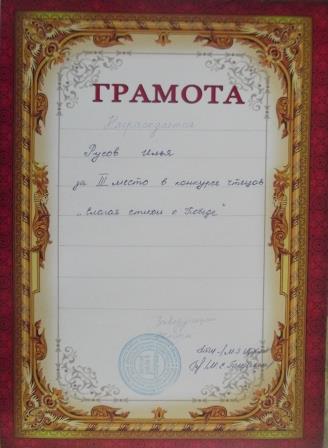 ГРАМОТА
Награждается
Русов Илья
за III место в конкурсе чтецов
„Слагая стихи о Победе"
Заведующая